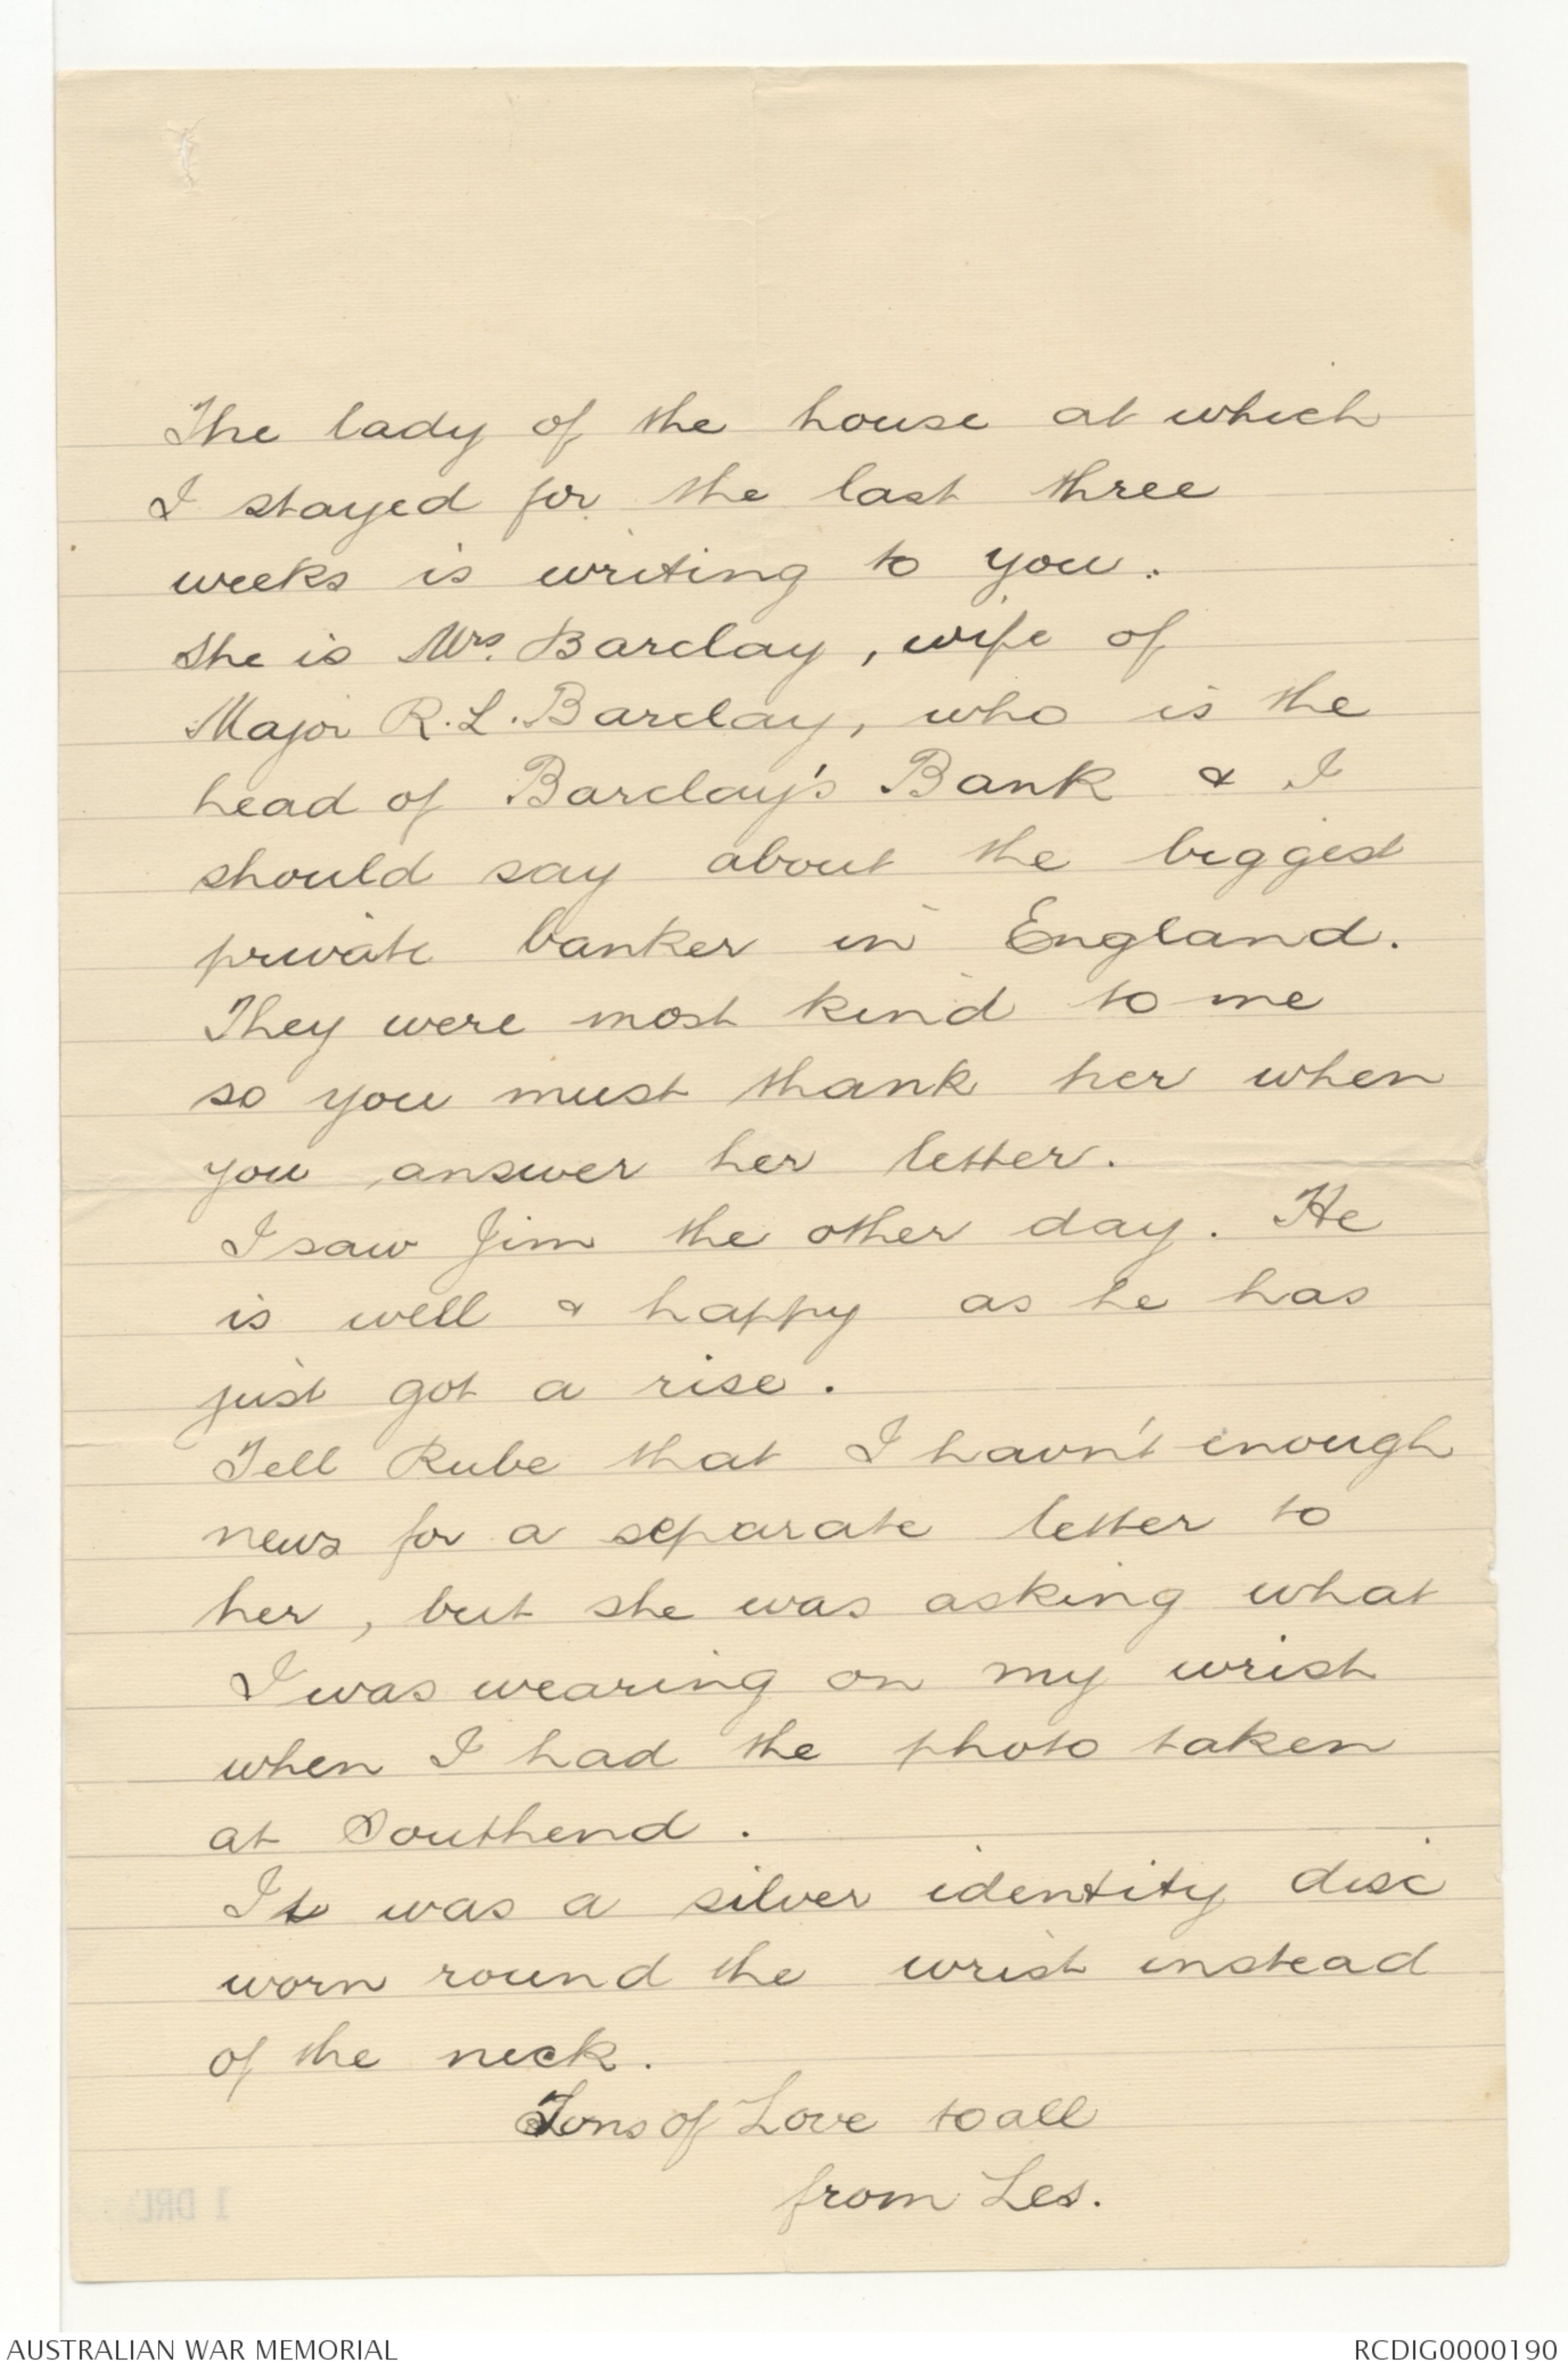 The lady of the house at which
I stayed for the last three
weeks is writing to you.
She is Mrs. Barclay, wife of
Major R.L. Barclay, who is the
head of Barclay's Bank & I
should say about the biggest
private banker in England.
They were most kind to me
so you must thank her when
you answer her letter.
I saw Jim the other day. He
is well & happy as he has
just got a rise.
Tell Rube that I havn't enough
news for a separate letter to
her, but she was asking what
I was wearing on my wrist
when I had the photo taken
at Southend.
It was a silver identity disc
worn round the wrist instead
of the neck.
Tons of Love to all
from Les.
1 DRL
AUSTRALIAN WAR MEMORIAL
RCDIG0000190